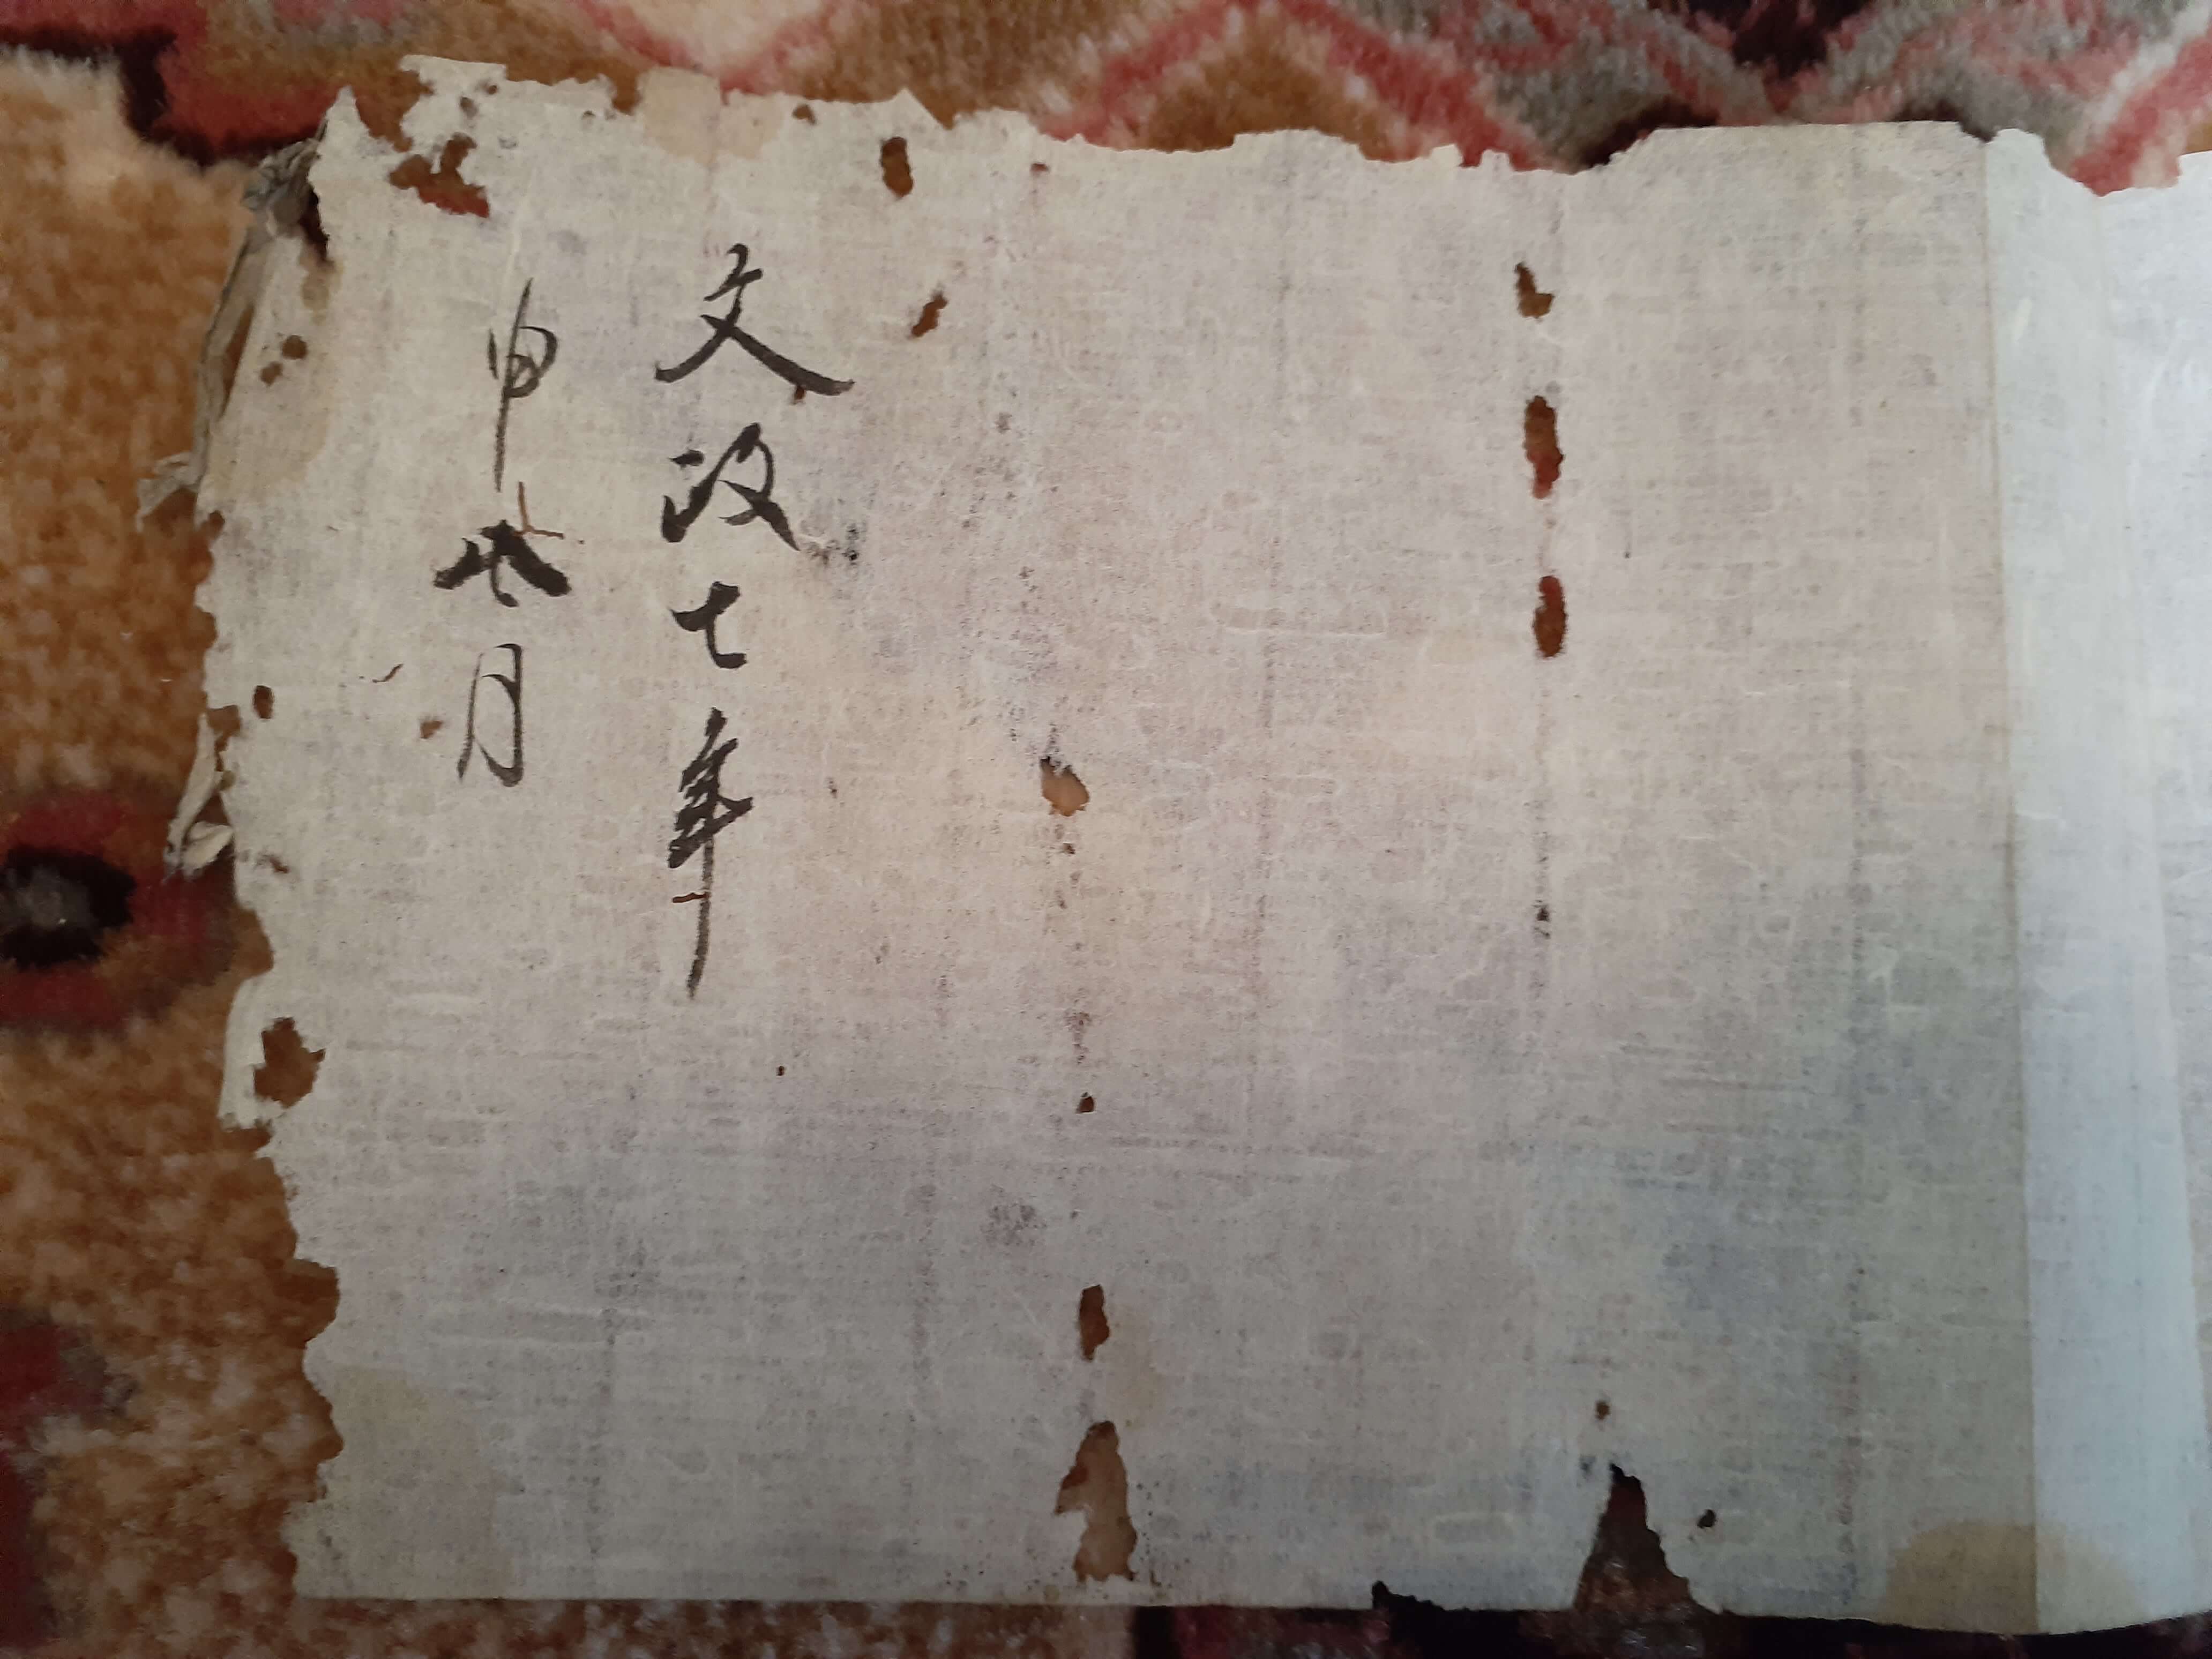 文政七年
申月